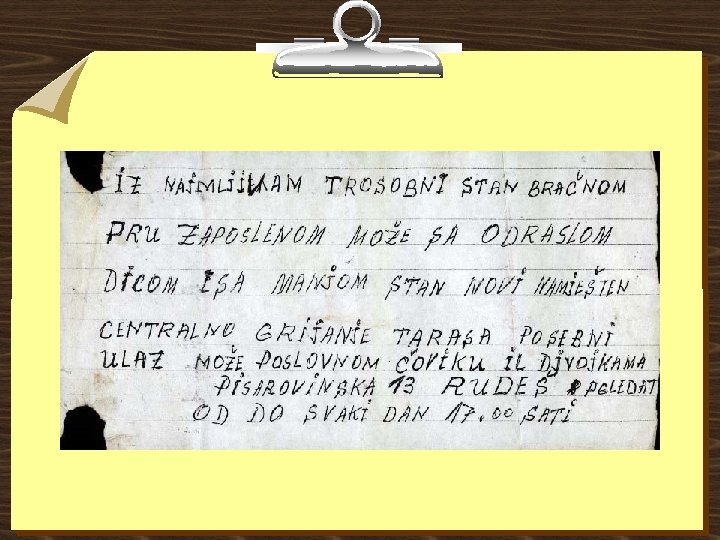 IZ NAIMLJIVKAM TROSOBNI STAN BRAČNOM
PRU ZAPOSLENOM MOŽE SA ODRASLOM
DICOM ISA MANJOM STAN NOVI NAMJEŠTEN
CENTRALNO GRIJANJE TARASA POSEBNI
ULAZ MOŽE POSLOVNOM ČOVIKU IL DJVOJKAMA
PISAROVINSKA 13 RUDEŠ POGLEDAT
OD DO SVAKI DAN 17.00 SATI